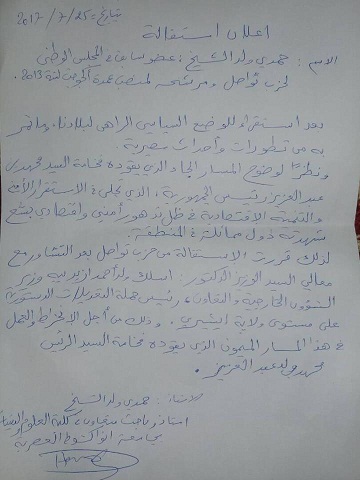 بتاريخ: 25/7/2017
اعلان استقالة
الاسم: حمدي ولد الشيخ: عضو سابق في المجلس الوطني
لحزب تواصل ومرشحه لمنصب عمدة أكجوجت لسنة 2013.
بعد استقراء للوضع السياسي الراهن لبلادنا، وما تمر
به من تطورات وأحداث مصيرية
ونظرا لوضوح المسار الجاد الذي يقوده فخامة السيد محمد ولد
عبد العزيز رئيس الجمهورية، الذي تجلى في الاستقرار الأمني
والتنمية الاقتصادية في ظل تدهور أمني واقتصادي بشع
شهدته دول مماثلة في المنطقة.
لذلك قررت الاستقالة من حزب تواصل بعد التشاور مع
معالي السيد الوزير الدكتور: اسلك ولد أحمد إزيد بيه وزير
الشؤون الخارجية والتعاون، رئيس حملة التعديلات الدستورية
على مستوى ولاية إينشيري. وذلك من أجل الإنخراط والعمل
في هذا المسار الميمون الذي يقوده فخامة السيد الرئيس
محمد ولد عبد العزيز.
الأستاذ: حمدي ولد الشيخ
استاذ باحث متعاون، كلية العلوم والتقنيات
بجامعة انواكشوط العصرية